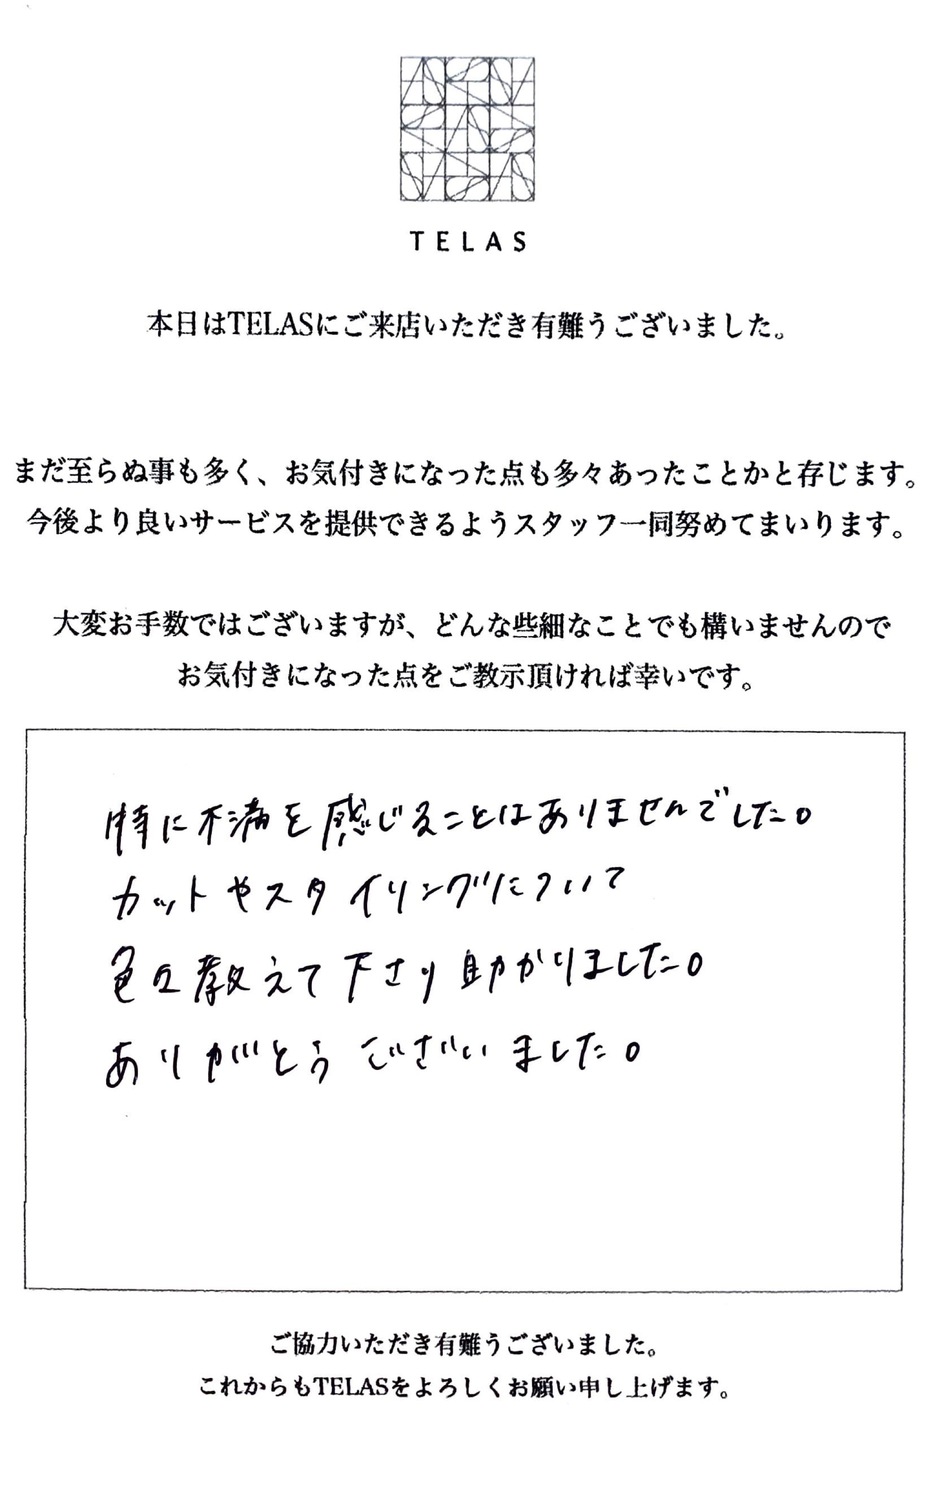 TELAS
本日はTELASにご来店いただき有難うございました。
まだ至らぬ事も多く、お気付きになった点も多々あったことかと存じます。
今後より良いサービスを提供できるようスタッフ一同努めてまいります。
大変お手数ではございますが、どんな些細なことでも構いませんので
お気付きになった点をご教示頂ければ幸いです。
特に不満を感じることはありませんでした。
カットやスタイリングについて
色々教えて下さり助かりました。
ありがとうございました。
ご協力いただき有難うございました。
これからもTELASをよろしくお願い申し上げます。